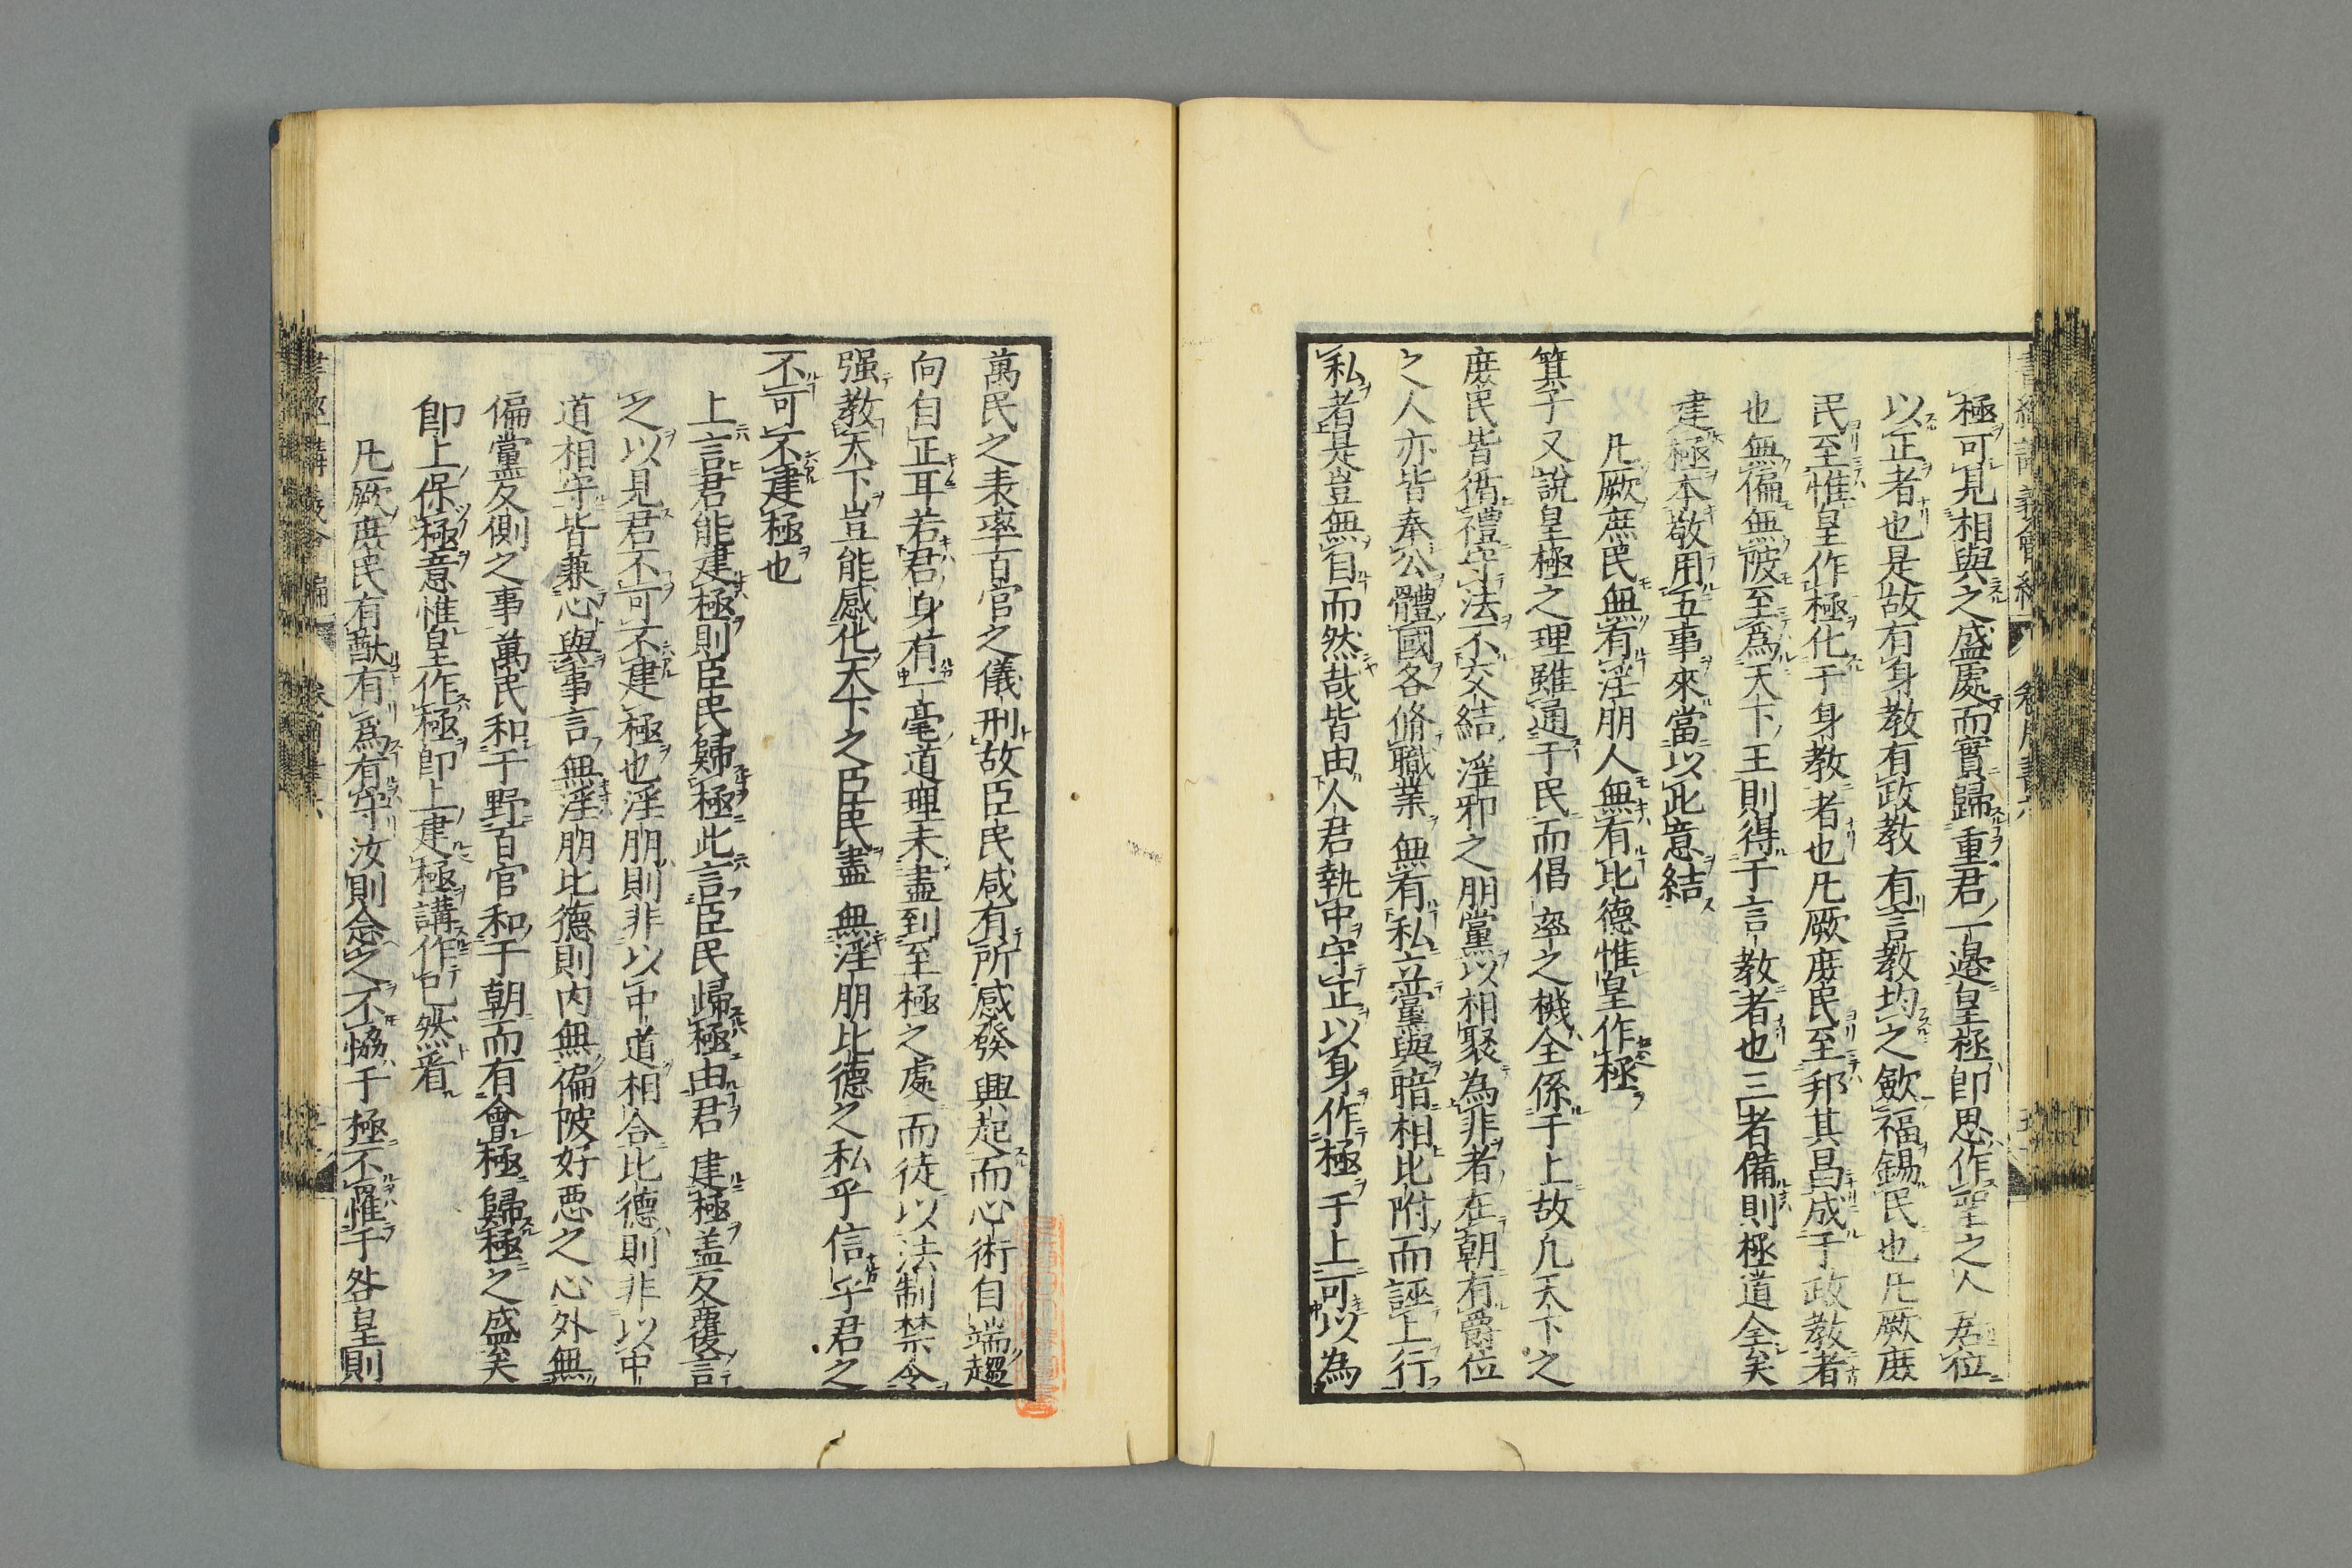 極可見相與之盛處而實歸重君一邉皇極卽思作聖之人君位
以正者也是故有身教有政教有言教均之歛福錫民也凡厥庶
民至惟皇作極化于身教者也凡厥庶民至邦其昌成于政教者
也無偏無陂至為天下王則得于言教者也三者備則極道全矣
建極本敬用五事來當以此意結
凡厥庶民無有淫朋人無有比德惟皇作極
箕子又說皇極之理雖通于民而倡率之機全係于上故凡天下之
庶民皆循禮守法不交結淫邪之朋黨以相聚為非者在朝有爵位
之人亦皆奉公體國各脩職業無有私立黨與暗相比附而誣上行
私者是豈無自而然哉皆由人君執中守正以身作極于上可以為
萬民之表率百官之儀刑故臣民咸有所感發興起而心術自端趨
向自正耳若君身有一毫道理未盡到至極之處而徒以法制禁令
强教天下豈能感化天下之臣民盡無淫朋比德之私乎信乎君之
不可不建極也
上言君能建極則臣民歸極此言臣民歸極由君建極盖反覆言
之以見君不可不建極也淫朋則非以中道相合比德則非以中
道相守皆兼心與事言無淫朋比德則内無偏陂好惡之心外無
偏黨反側之事萬民和于野百官和于朝而有會極歸極之盛矣
卽上保極意惟皇作極卽上建極講作已然看
凡厥庶民有猷有為有守汝則念之不恊于極不罹于咎皇則